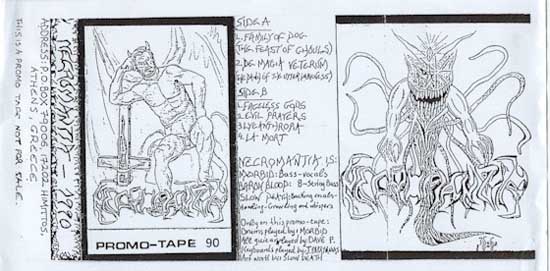 ADDRESS: P.O.BOX
ATHENS, GREECE
THIS IS A PROMO TAPE NOT FOR SALE.
NECROMANTIA - 1990
NECROMANTIA
PROMO-TAPE 90
SIDE A
1. FAMILY OF DOG
(THE FEAST OF GHOULS)
2. DE MAGIA VETERUM
SIDE B
1. FACELESS GODS
2. EVIL PRAYERS
3. LYCANTHROPIA
4. LA MORT
NECROMANTIA IS:
MORBID: Bass-vocals
BARON BLOOD: 8-string Bass
SLOW DEATH: Backing vocals-
howling-Growling and whispers
Only on this promo-tape:
Drums played by MORBID
played by DAVE P.
Keyboards played by
Art work by SLOW DEATH
NECROMANTIA